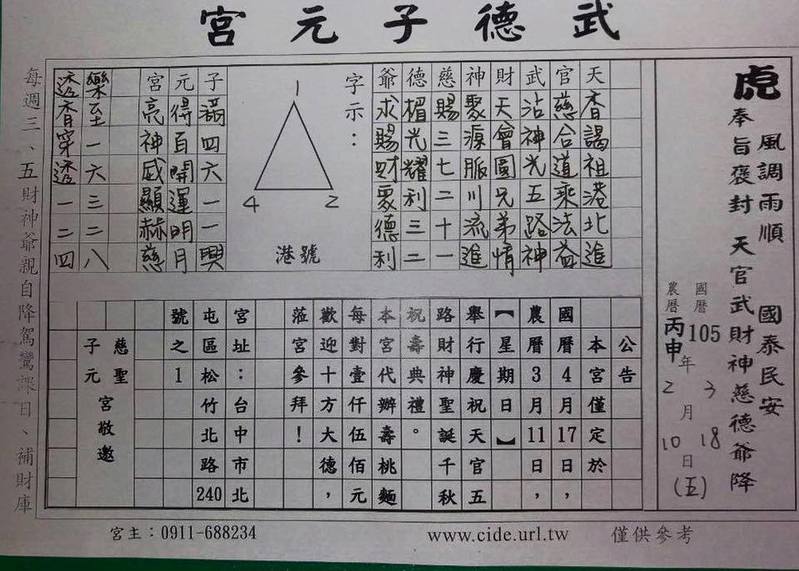 武德子元宮
虎
風調雨順　國泰民安
奉旨褒封　天官武財神慈德爺降
國曆105年3月18日(五)
農曆丙申2月10日
天香謁祖港北進
官慈合道乘法益
武沾神光五路神
財天會圓兄弟情
神聚源脈川流進
慈賜三七二十一
德楣光耀利三二
爺求賜財聚德利
字示：
1
4 2
港號
子滿四六一一興
元得百開運明月
宮亮神威顯赫慈
樂至一六三二八
透香穿透一二四
公告
本宮僅定於
國曆4月17日，
農曆3月11日，
【星期日】
舉行慶祝天官五
路財神聖誕千秋
祝壽典禮。
本宮代辦壽桃麵
每對壹仟伍佰元
歡迎十方大德，
蒞宮參拜！
宮址：台中市北
屯區松竹北路240
號之1
慈聖
子元宮敬邀
每週三、五財神爺親自降駕鸞課日、補財庫
宮主：0911-688234
www.cide.url.tw
僅供參考